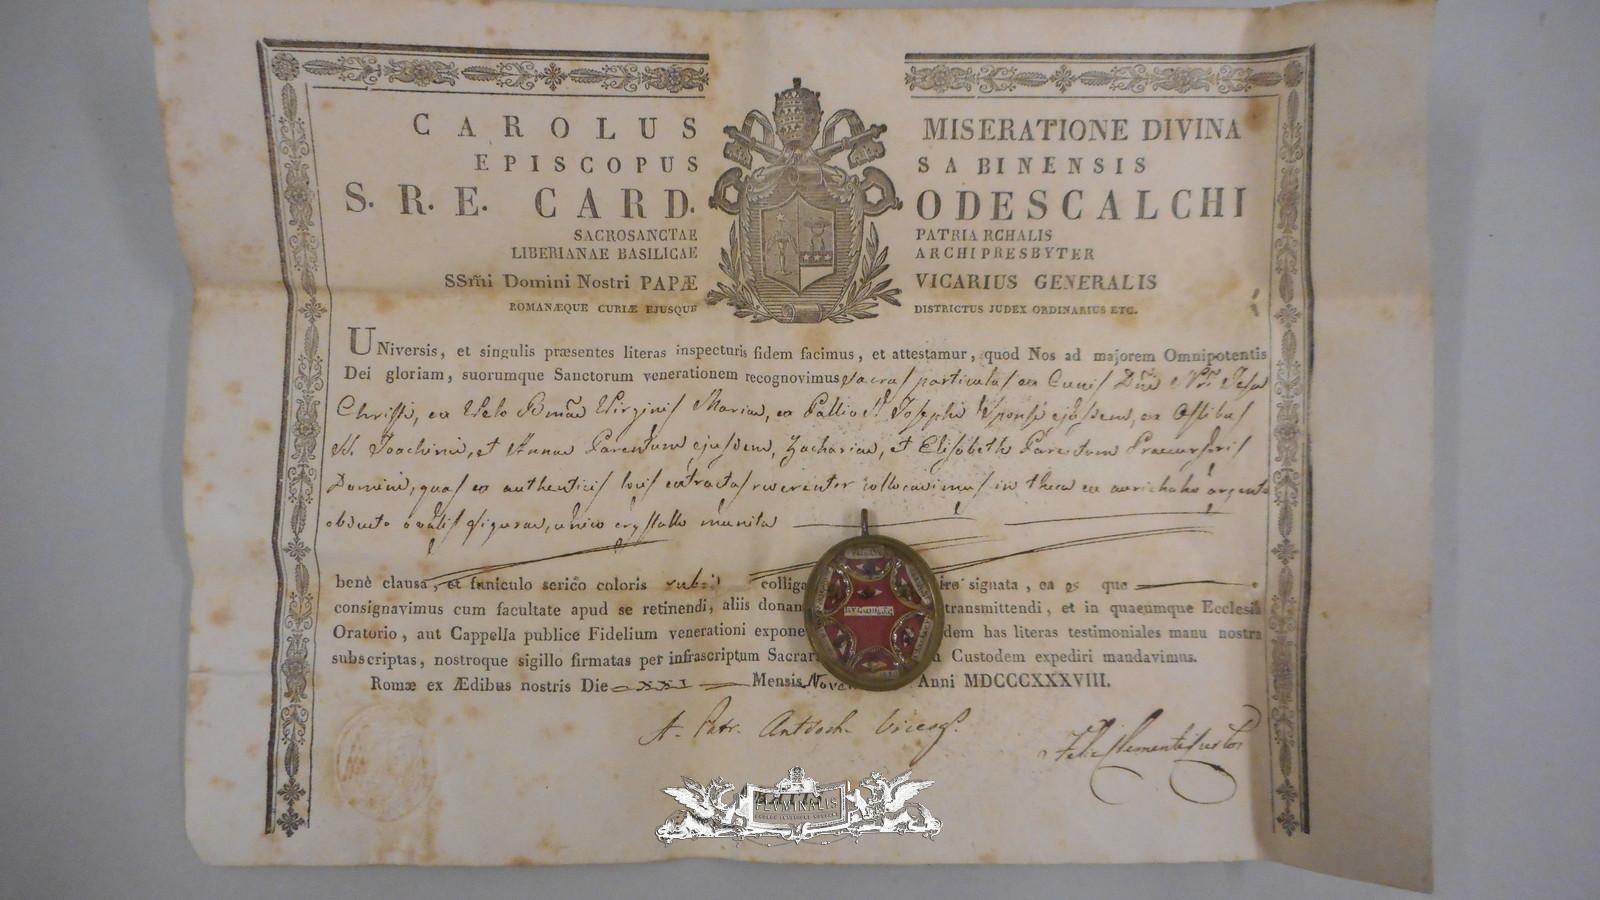 CAROLUS MISERATIONE DIVINA
EPISCOPUS SABINENSIS
S. R. E. CARD. ODESCALCHI
SACROSANCTAE PATRIARCHALIS
LIBERIANAE BASILICAE ARCHIPRESBYTER
SSm̃i Domini Nostri PAPÆ VICARIUS GENERALIS
ROMANÆQUE CURIÆ EJUSQUE DISTRICTUS JUDEX ORDINARIUS ETC.
Universis, et singulis præsentes literas inspecturis fidem facimus, et attestamur, quod Nos ad majorem Omnipotentis
Dei gloriam, suorumque Sanctorum venerationem recognovimus sacras particulas ex Cunis Dñi Nri Jesu
Christi, ex Velo Virginis Mariae, ex Pallio S. Josephi Sponsi ejusdem, ex Ossibus
SS. Joachimi, et Annae Parentum ejusdem, Zachariae, et Elisabeth Parentum Praecursoris
Domini, quas ex authenticis locis extractas reverenter collocavimus in theca ex aurichalco argento
obducto ovalis figurae, unico crystallo munita
benè clausa, et funiculo serico coloris rubri colliga signata, ea que
consignavimus cum facultate apud se retinendi, aliis donan transmittendi, et in quacumque Ecclesia
Oratorio, aut Cappella publice Fidelium venerationi expone dem has literas testimoniales manu nostra
subscriptas, nostroque sigillo firmatas per infrascriptum Sacrar Custodem expediri mandavimus.
Romæ ex Ædibus nostris Die XXI Mensis Nove Anni MDCCCXXXVIII.
A. Patr. Antioch. Vicesg.
FLUMINALIS